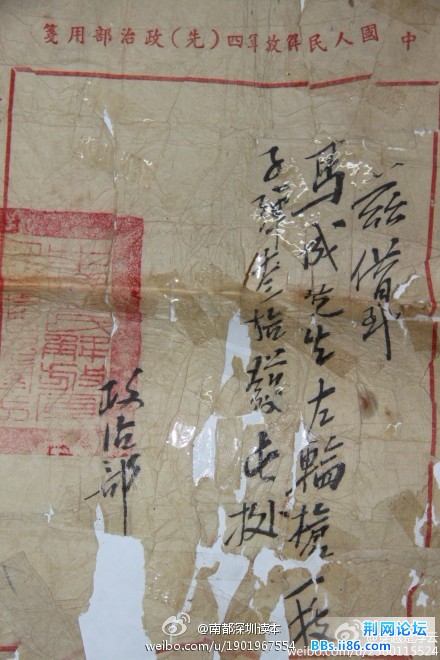 中國人民解放军四(先)政治部用箋
茲借到
馬成先生左輪槍一枝
子彈叁拾發此據
政治部
@南都深圳读本
weibo.com/u/1901967554
荆网论坛
BBs.ii86.com